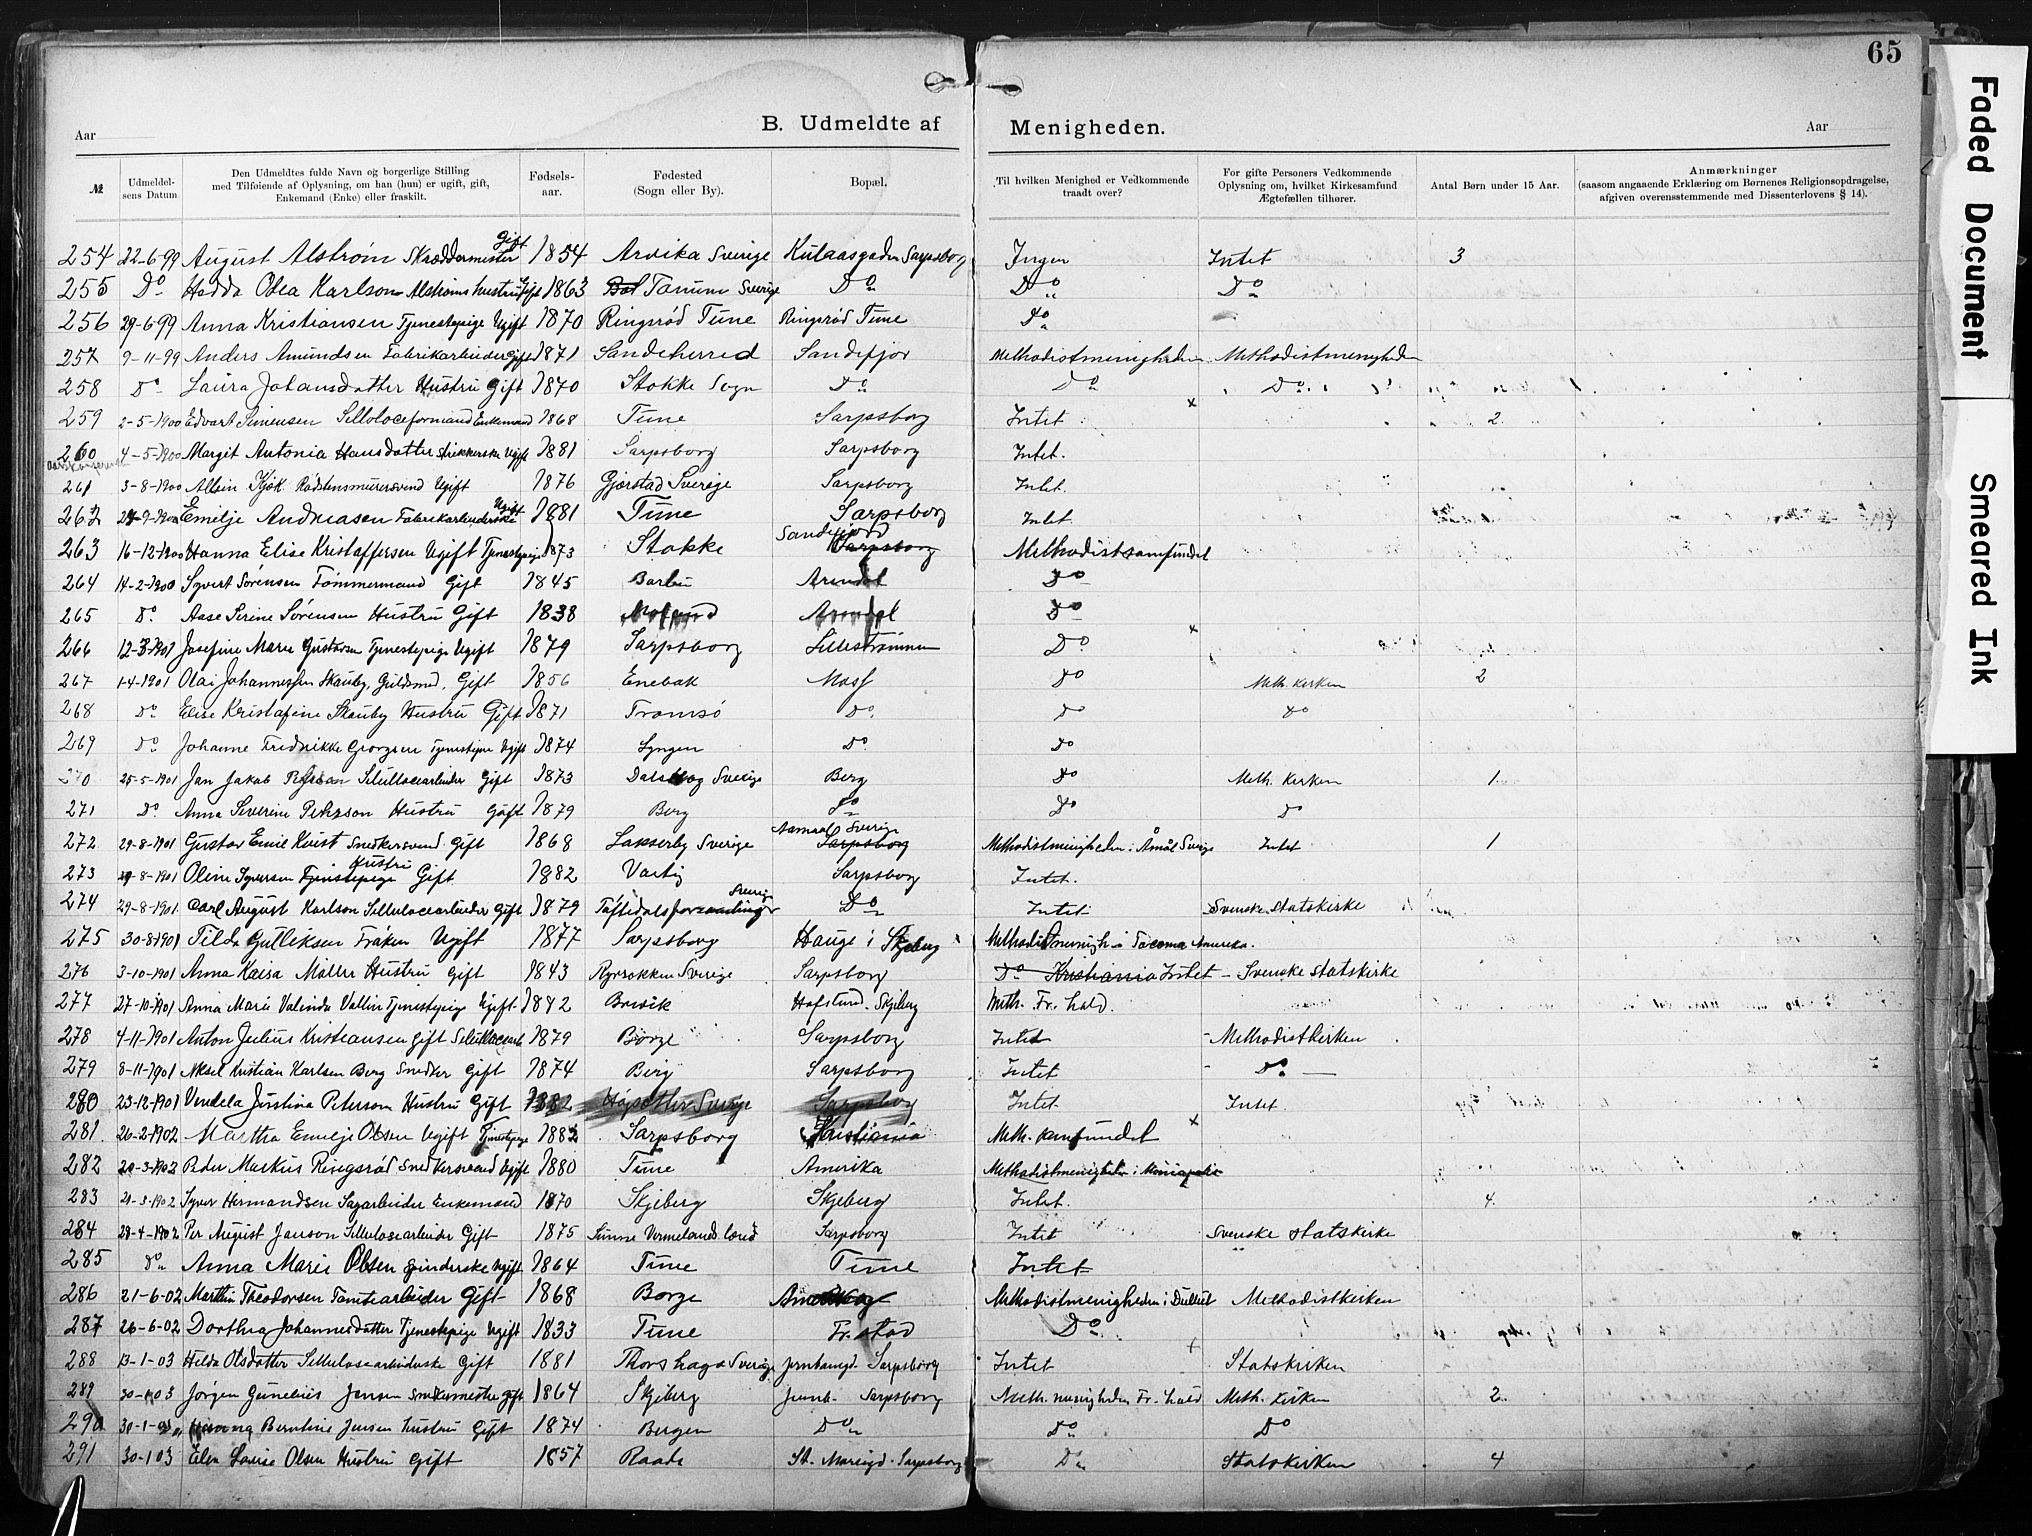 65
Faded Document
Smeared Ink
Aar
B. Udmeldte af Menigheden.
Aar
№ | Udmeldelsens Datum | Den Udmeldtes fulde Navn og borgerlige Stilling med Tilføiende af Oplysning, om han (hun) er ugift, gift, Enkemand (Enke) eller fraskilt. | Fødselsaar. | Fødested (Sogn eller By). | Bopæl. | Til hvilken Menighed er Vedkommende traadt over? | For gifte Personers Vedkommende Oplysning om, hvilket Kirkesamfund Ægtefællen tilhører. | Antal Børn under 15 Aar. | Anmærkninger (saasom angaaende Erklæring om Børnenes Religionsopdragelse, afgiven overensstemmende med Dissenterlovens § 14).
254 22-6-99 August Alstrøm Skræddermester Gift 1854 Arvika Sverige Kulaasgaden Sarpsborg Ingen Intet 3
255 Do Hedda Olea Karlson Alstrøms hustru Gift 1863 Tanum Sverige Do Do Do
256 29-6-99 Anna Kristiansen Tjenestepige Ugift 1870 Ringsrød Tune Ringsrød Tune Do
257 9-11-99 Anders Amundsen Fabrikarbeider Gift 1871 Sandeherred Sandefjor Methodistmenigheden Methodistmenigheden
258 Do Laura Johansdatter Hustru Gift 1870 Stokke Sogn Do Do Do
259 2-5-1900 Edvart Simensen Enkemand 1868 Tune Sarpsborg Intet x 2
260 4-5-1900 Margit Antonia Hansdatter Strikkerske Ugift 1881 Sarpsborg Sarpsborg Intet.
261 3-8-1900 Ugift 1876 Gjørstad Sverige Sarpsborg Intet.
262 Emilje Andreasen Fabrikarbeiderske Ugift 1881 Tune Sarpsborg Intet
263 16-12-1900 Hanna Elise Kristoffersen Ugift Tjenestepige 1873 Stokke Sandefjord Sarpsborg Methodistsamfundet
264 14-2-1900 Syvert Sørensen Tømmermand Gift 1845 Barbu Arendal Do
265 Do Aase Serine Sørensen Hustru Gift 1838 Arendal Do
266 12-3-1901 Josefine Marie Gustavsen Tjenestepige Ugift 1879 Sarpsborg Lillestrømmen Do x
267 1-4-1901 Olai Johannessen Skauby, Guldsmed, Gift 1856 Enebak Moss Do Meth. Kirken 2
268 Do Elise Kristofine Skauby Hustru Gift 1871 Tromsø Do Do Do
269 Do Johanne Fredrikke Georgsen Tjenestepige Ugift 1874 Lyngen Do Do
270 25-5-1901 Jan Jakob Peterson Sellulosearbeider Gift 1873 Sverige Berg Do Meth. Kirken 1
271 Do Anna Severine Peterson Hustru Gift 1879 Berg Do Do Do
272 29-8-1901 Gustav Emil Kvist Snedkersvend Gift 1868 Lakserby Sverige Aamaal Sverige Sarpsborg Methodistmenigheden i Åmål Sverige Intet 1
273 29-8-1901 Oline Syversen Tjenestepige Hustru Gift 1882 Varteig Sarpsborg Intet.
274 29-8-1901 Carl August Karlson Sellulosearbeider Gift 1879 Sverig Do Intet Svenske Statskirke
275 30-8-1901 Tilda Gulliksen Frøken Ugift 1877 Sarpsborg Hauge i Skjeberg Methodistmenigh. i Tacoma Amerika.
276 3-10-1901 Anna Kaisa Møller Hustru Gift 1843 Sverige Sarpsborg Do Kristiania Intet - Svenske Statskirke
277 27-10-1901 Anna Marie Valinda Vallin Tjenestepige Ugift 1882 Brevik Hafslund. Skjeberg Meth. Fr. hald.
278 4-11-1901 Anton Julius Kristiansen Gift 1879 Borge Sarpsborg Intet - Methodistkirken
279 8-11-1901 Aksel Kristian Karlsen Berg Snedker Gift 1874 Berg Sarpsborg Intet - Do
280 23-12-1901 Vendela Justina Peterson Hustru Gift 1882 Sverige Sarpsborg Intet Intet
281. 26-2-1902 Martha Emilje Olsen Ugift Tjenestepige 1882 Sarpsborg Kristiania Meth. samfundet x
282 20-3-1902 Peder Markus Ringsrød Snedkersvend Ugift 1880 Tune Amerika Methodistmenigheden i
283 21-3-1902 Syver Hermandsen Sagarbeider Enkemand 1870 Skjeberg Skjeberg Intet. 4.
284 29-4-1902 Per August Janson Sellulosearbeider Gift 1875 Sunne Vermelands Sarpsborg Intet Svenske Statskirke
285 Do Anna Marie Olsen Spinderske Ugift 1864 Tune Tune Intet
286 21-6-02 Marthin Theodorsen Tomtearbeider Gift 1868 Borge Methodistmenigheden i Methodistkirken
287 26-6-02 Dorthea Johannesdatter Tjenestepige Ugift 1833 Tune Fr. stad Do
288 13-1-03 Hilda Olsdatter Sellulosearbeiderske Gift 1881 Thorshaga Sverige Jernbanegd. Sarpsborg Intet Statskirken
289 30-1-03 Jørgen Gunelius Jensen Snekermester Gift 1864 Skjeberg Jernb. Sarpsborg Meth. menigheden Fr. hald Meth. Kirken 2.
290 Berntine Jensen hustru Gift 1874 Bergen Do Do Do
291 30-1 03 Elen Lovise Olsen Hustru Gift 1857 Raade St. Mariegd. Sarpsborg Do Statskirken 4